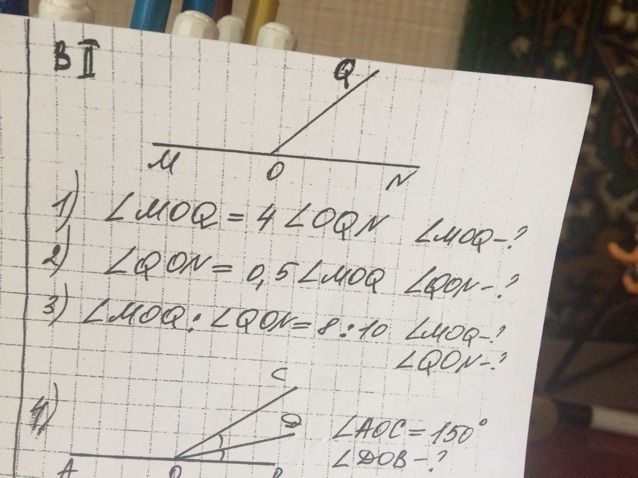 В II
Q
M O N
1) ∠MOQ = 4 ∠OQN ∠MOQ - ?
2) ∠QON = 0,5 ∠MOQ ∠QON - ?
3) ∠MOQ : ∠QON = 8 : 10 ∠MOQ - ?
∠QON - ?
4)
C
D
A O B
∠AOC = 150°
∠DOB - ?